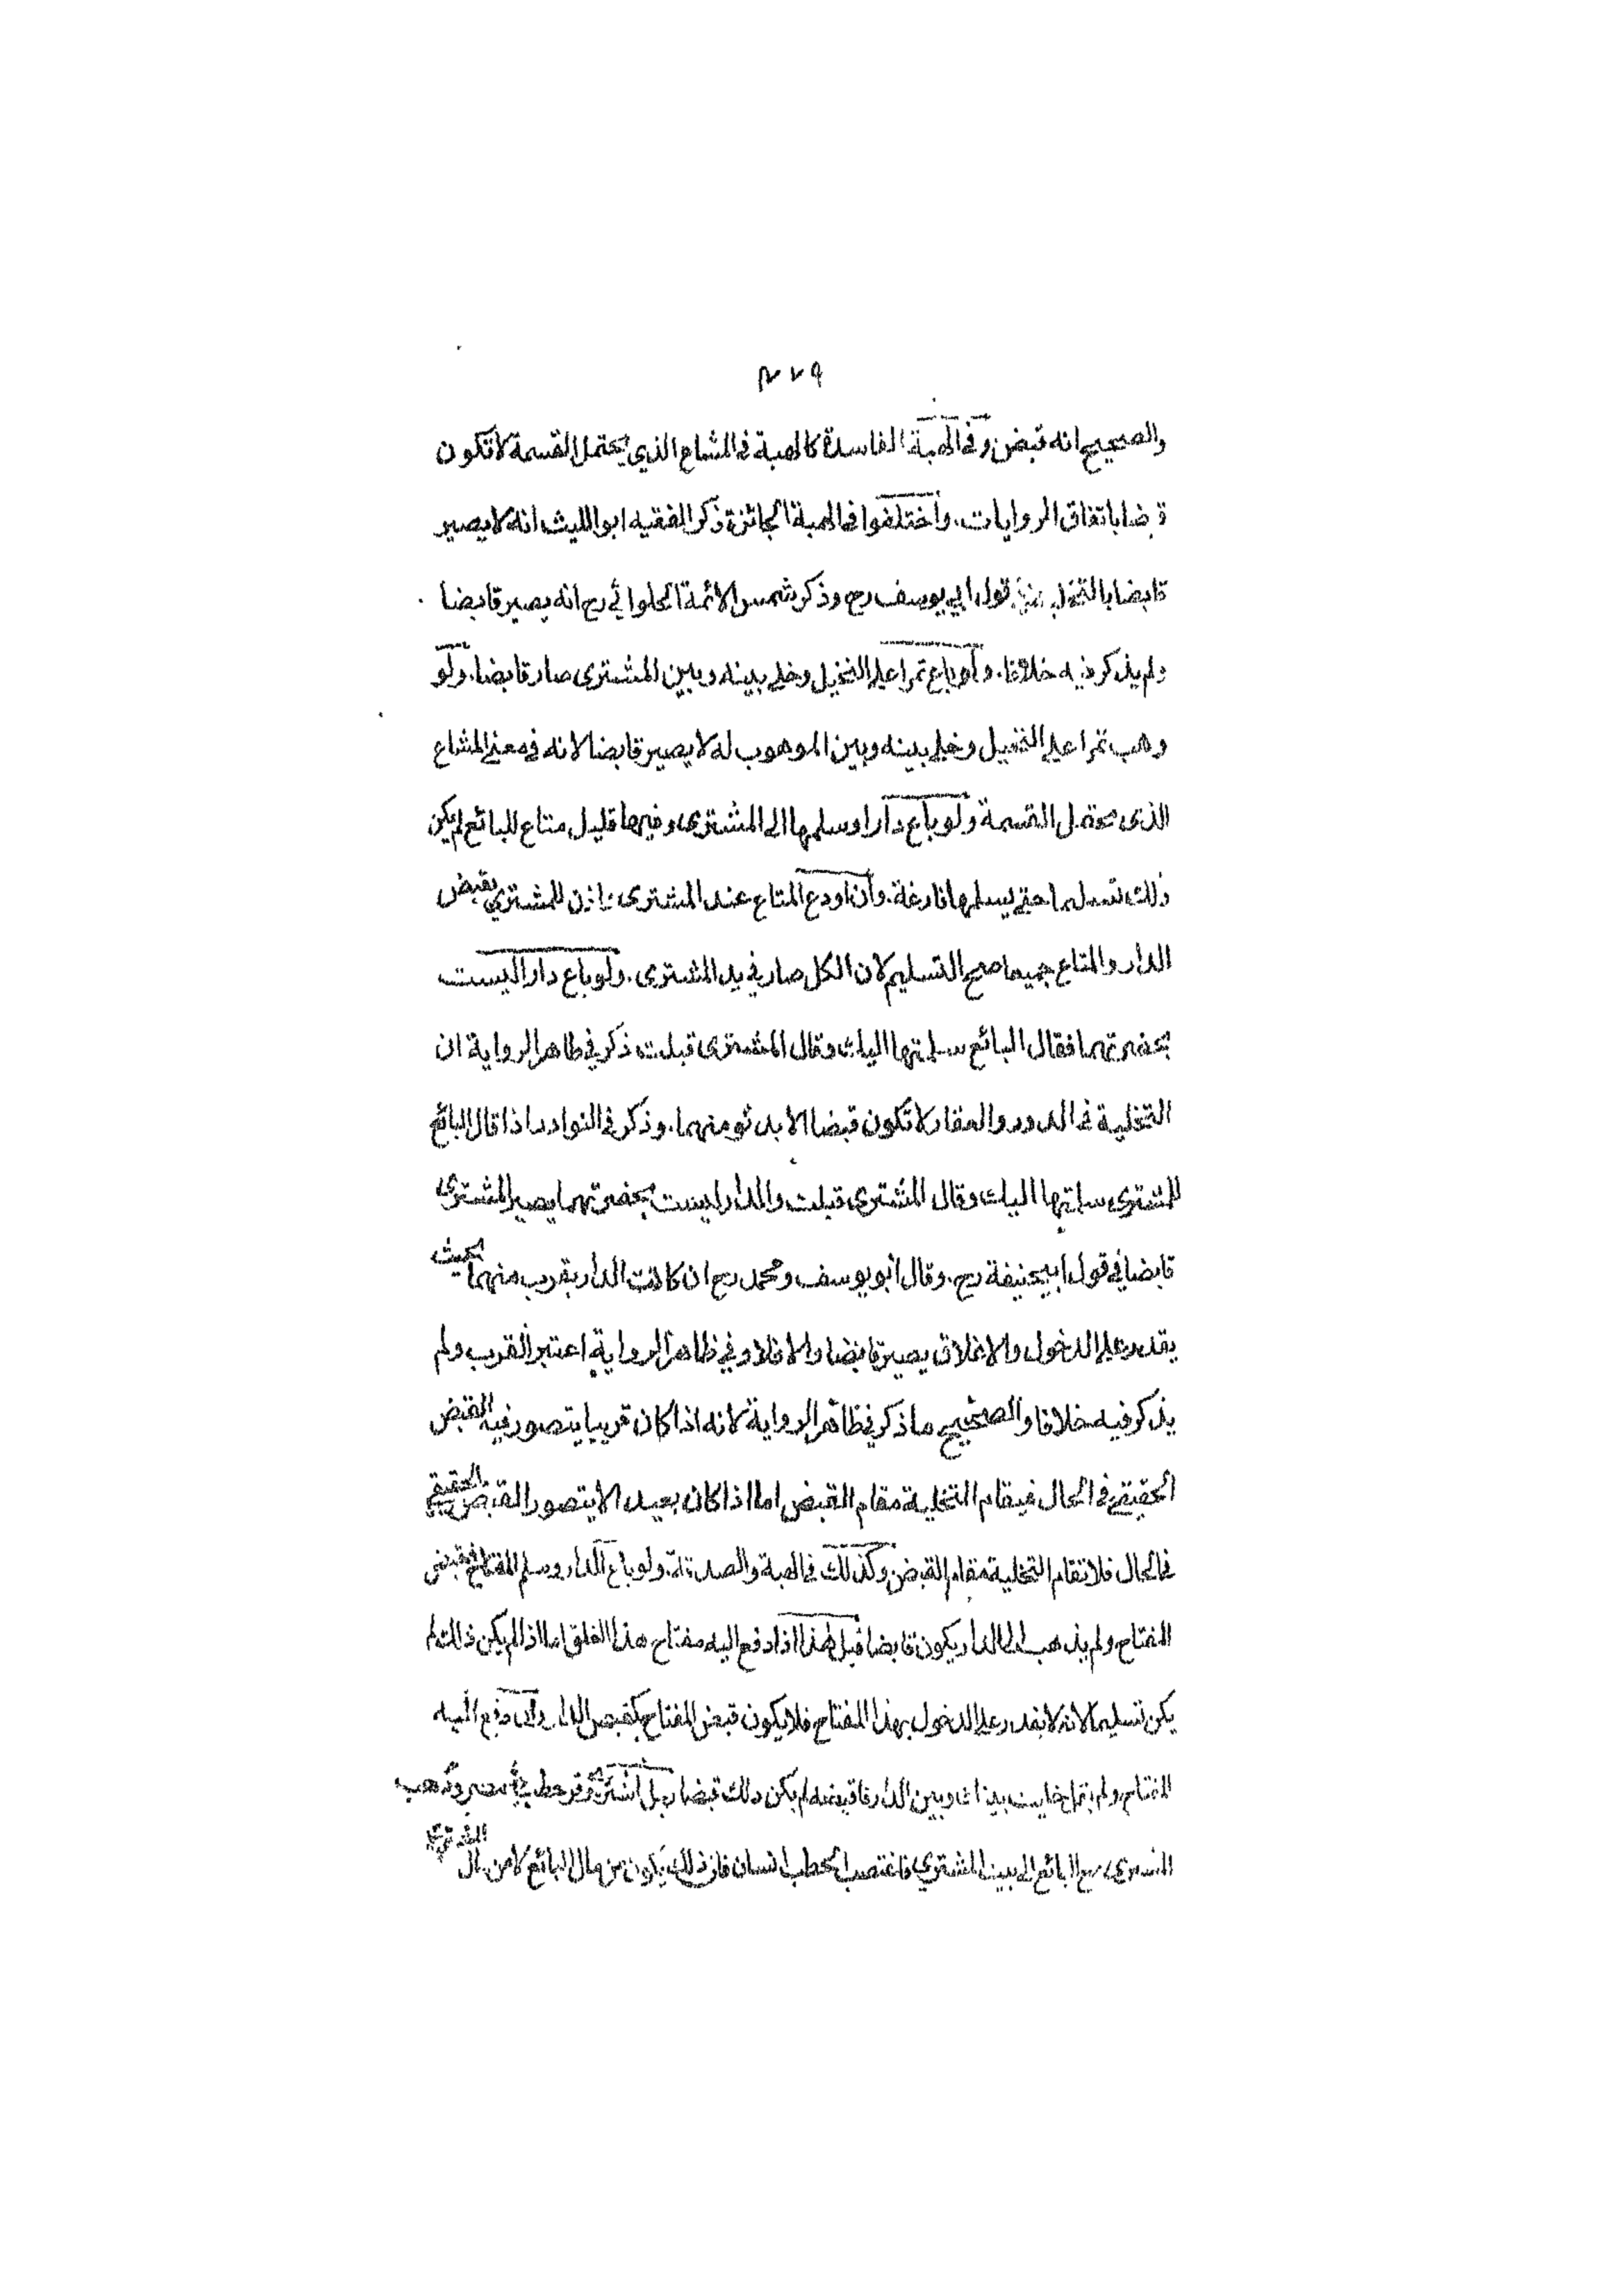 والصحيح انه قبض وفي الهبة الفاسدة كالهبة في المشاع الذي يحتمل القسمة لا تكون
قبضا باتفاق الروايات. واختلفوا في الهبة الجائزة ذكر الفقيه ابو الليث انه لا يصير
قابضا بالتخلية قول ابي يوسف رح وذكر شمس الائمة الحلوائي رح انه يصير قابضا
ولم يذكر فيه خلافا. ولو باع تمرا على النخيل وخلى بينه وبين المشترى صار قابضا. ولو
وهب تمرا على النخيل وخلى بينه وبين الموهوب له لا يصير قابضا لانه في معنى المشاع
الذى يحتمل القسمة ولو باع دارا وسلمها الى المشترى وفيها قليل متاع للبائع لم يكن
ذلك تسليما حتى يسلمها فارغة. وان اودع المتاع عند المشترى اذن للمشتري بقبض
الدار والمتاع جميعا صح التسليم لان الكل صار في يد المشترى. ولو باع دارا ليست
بحضرتهما فقال البائع سلمتها اليك وقال المشترى قبلت ذكر في ظاهر الرواية ان
التخلية في الدور والعقار لا تكون قبضا الا بدنو منهما. وذكر في النوادر اذا قال البائع
للمشترى سلمتها اليك وقال المشترى قبلت والدار ليست بحضرتهما يصير المشترى
قابضا في قول ابي حنيفة رح. وقال ابو يوسف ومحمد رح ان كانت الدار بقرب منهما بحيث
يقدر على الدخول والاغلاق يصير قابضا والا فلا وفي ظاهر الرواية اعتبر القرب ولم
يذكر فيه خلافا والصحيح ما ذكر في ظاهر الرواية لانه اذا كان قريبا يتصور فيه القبض
الحقيقي في الحال فيقام التخلية مقام القبض اما اذا كان بعيدا لا يتصور القبض الحقيقي
في الحال فلا تقام التخلية مقام القبض وكذلك في الهبة والصدقة. ولو باع الدار وسلم المفتاح فقبض
المفتاح ولم يذهب الى الدار يكون قابضا قيل هذا اذا دفع اليه مفتاح هذا الغلق اما اذا لم يكن ذلك لم
يكن تسليما لانه لا يقدر على الدخول بهذا المفتاح فلا يكون قبض المفتاح كقبض الدار وان دفع اليه
المفتاح ولم يقل خليت بينك وبين الدار فاقبضه لم يكن ذلك قبضا رجل اشترى وقر حطب في مصر وذهب
المشترى مع البائع الى بيت المشتري فاغتصب الحطب انسان فان ذلك يكون من مال البائع لا من مال المشتري